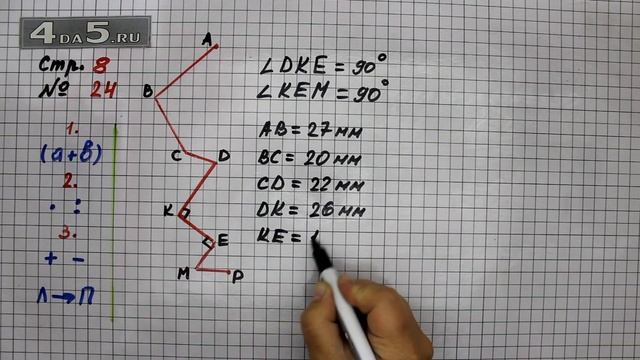 4ДА5.RU
Стр. 8
№ 24
1.
(а+в)
2.
· :
3.
+ −
Л→П
A
B
C
D
K
E
M
P
∠DKE = 90°
∠KEM = 90°
AB = 27 мм
BC = 20 мм
CD = 22 мм
DK = 26 мм
KE =